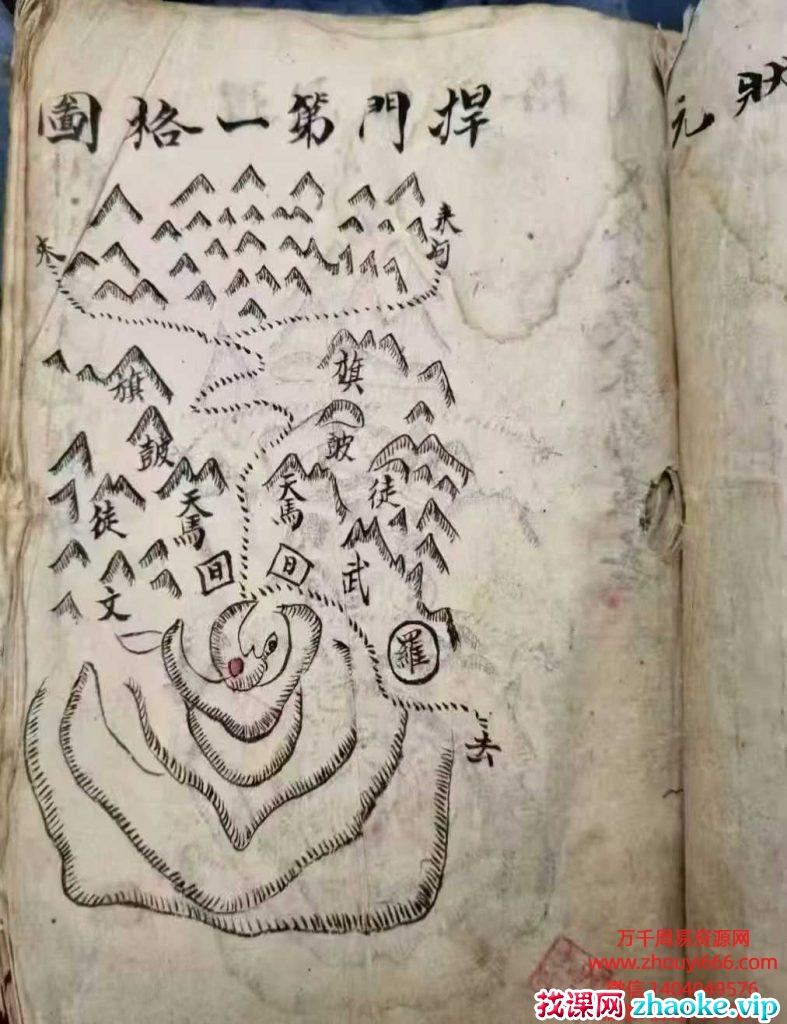 捍門第一格圖
狀
元
來
來向
旗
旗
鼓
鼓
天馬
天馬
徒
徒
文
武
羅
去
万千周易资源网
www.zhouyi666.com
微信 1404049576
找课网 zhaoke.vip